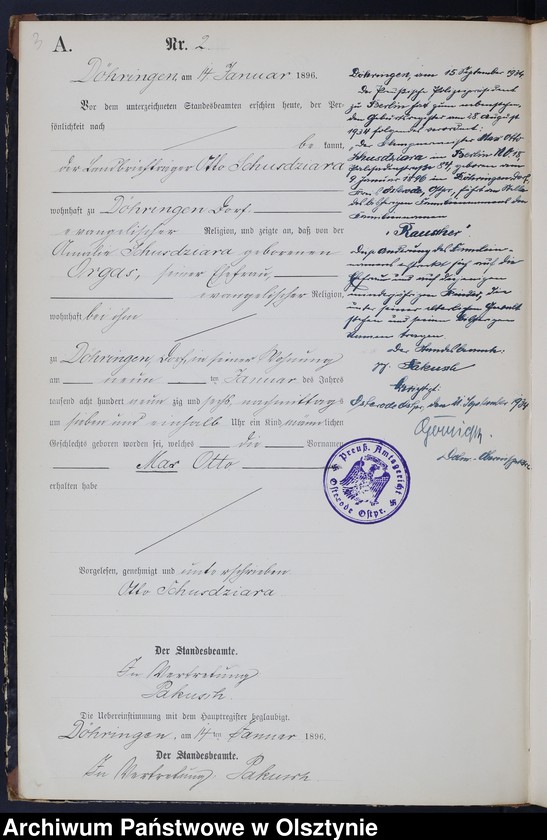 3
A.
Nr. 2
Döhringen, am 14 Januar 1896.
Vor dem unterzeichneten Standesbeamten erschien heute, der Per-
sönlichkeit nach
be kannt,
der Landbriefträger Otto Schusdziara
wohnhaft zu Döhringen Dorf
evangelischer Religion, und zeigte an, daß von der
Schusdziara geborenen
Orgas, seiner Ehefrau,
evangelischer Religion,
wohnhaft bei ihm
zu Döhringen, Dorf, in seiner Wohnung
am neun ten Januar des Jahres
tausend acht hundert neun zig und sechs, nachmittags
um sieben und einhalb Uhr ein Kind männlichen
Geschlechts geboren worden sei, welches die Vornamen
Max Otto
erhalten habe
Vorgelesen, genehmigt und unterschrieben
Otto Schusdziara
Der Standesbeamte.
In Vertretung
Pakusch.
Die Uebereinstimmung mit dem Hauptregister beglaubigt.
Döhringen, am 14ten Januar 1896.
Der Standesbeamte.
In Vertretung Pakusch
Döhringen, am 15 September 1934
Der Preußische Polizeipräsident
zu Berlin hat zum
den Geburtsregister am 28 August
1934 folgendes
Max Otto
Schusdziara in Berlin NO 18
54, geboren am
9 Januar 1896 in Döhringen Dorf,
Osterode, Ostpr., führt an Stelle
des bisherigen Familiennamens den
Familiennamen
"Rauscher".
Diese Änderung des Familien-
namens erstreckt sich auf die
Ehefrau und auf diejenigen
minderjährigen Kinder, die
unter seiner elterlichen Gewalt
stehen und seinen bisherigen
Namen tragen
Der Standesbeamte:
gez. Pakusch
Osterode Ostpr., den 21 September 1934
Preuß. Amtsgericht
Osterode Ostpr.
Archiwum Państwowe w Olsztynie